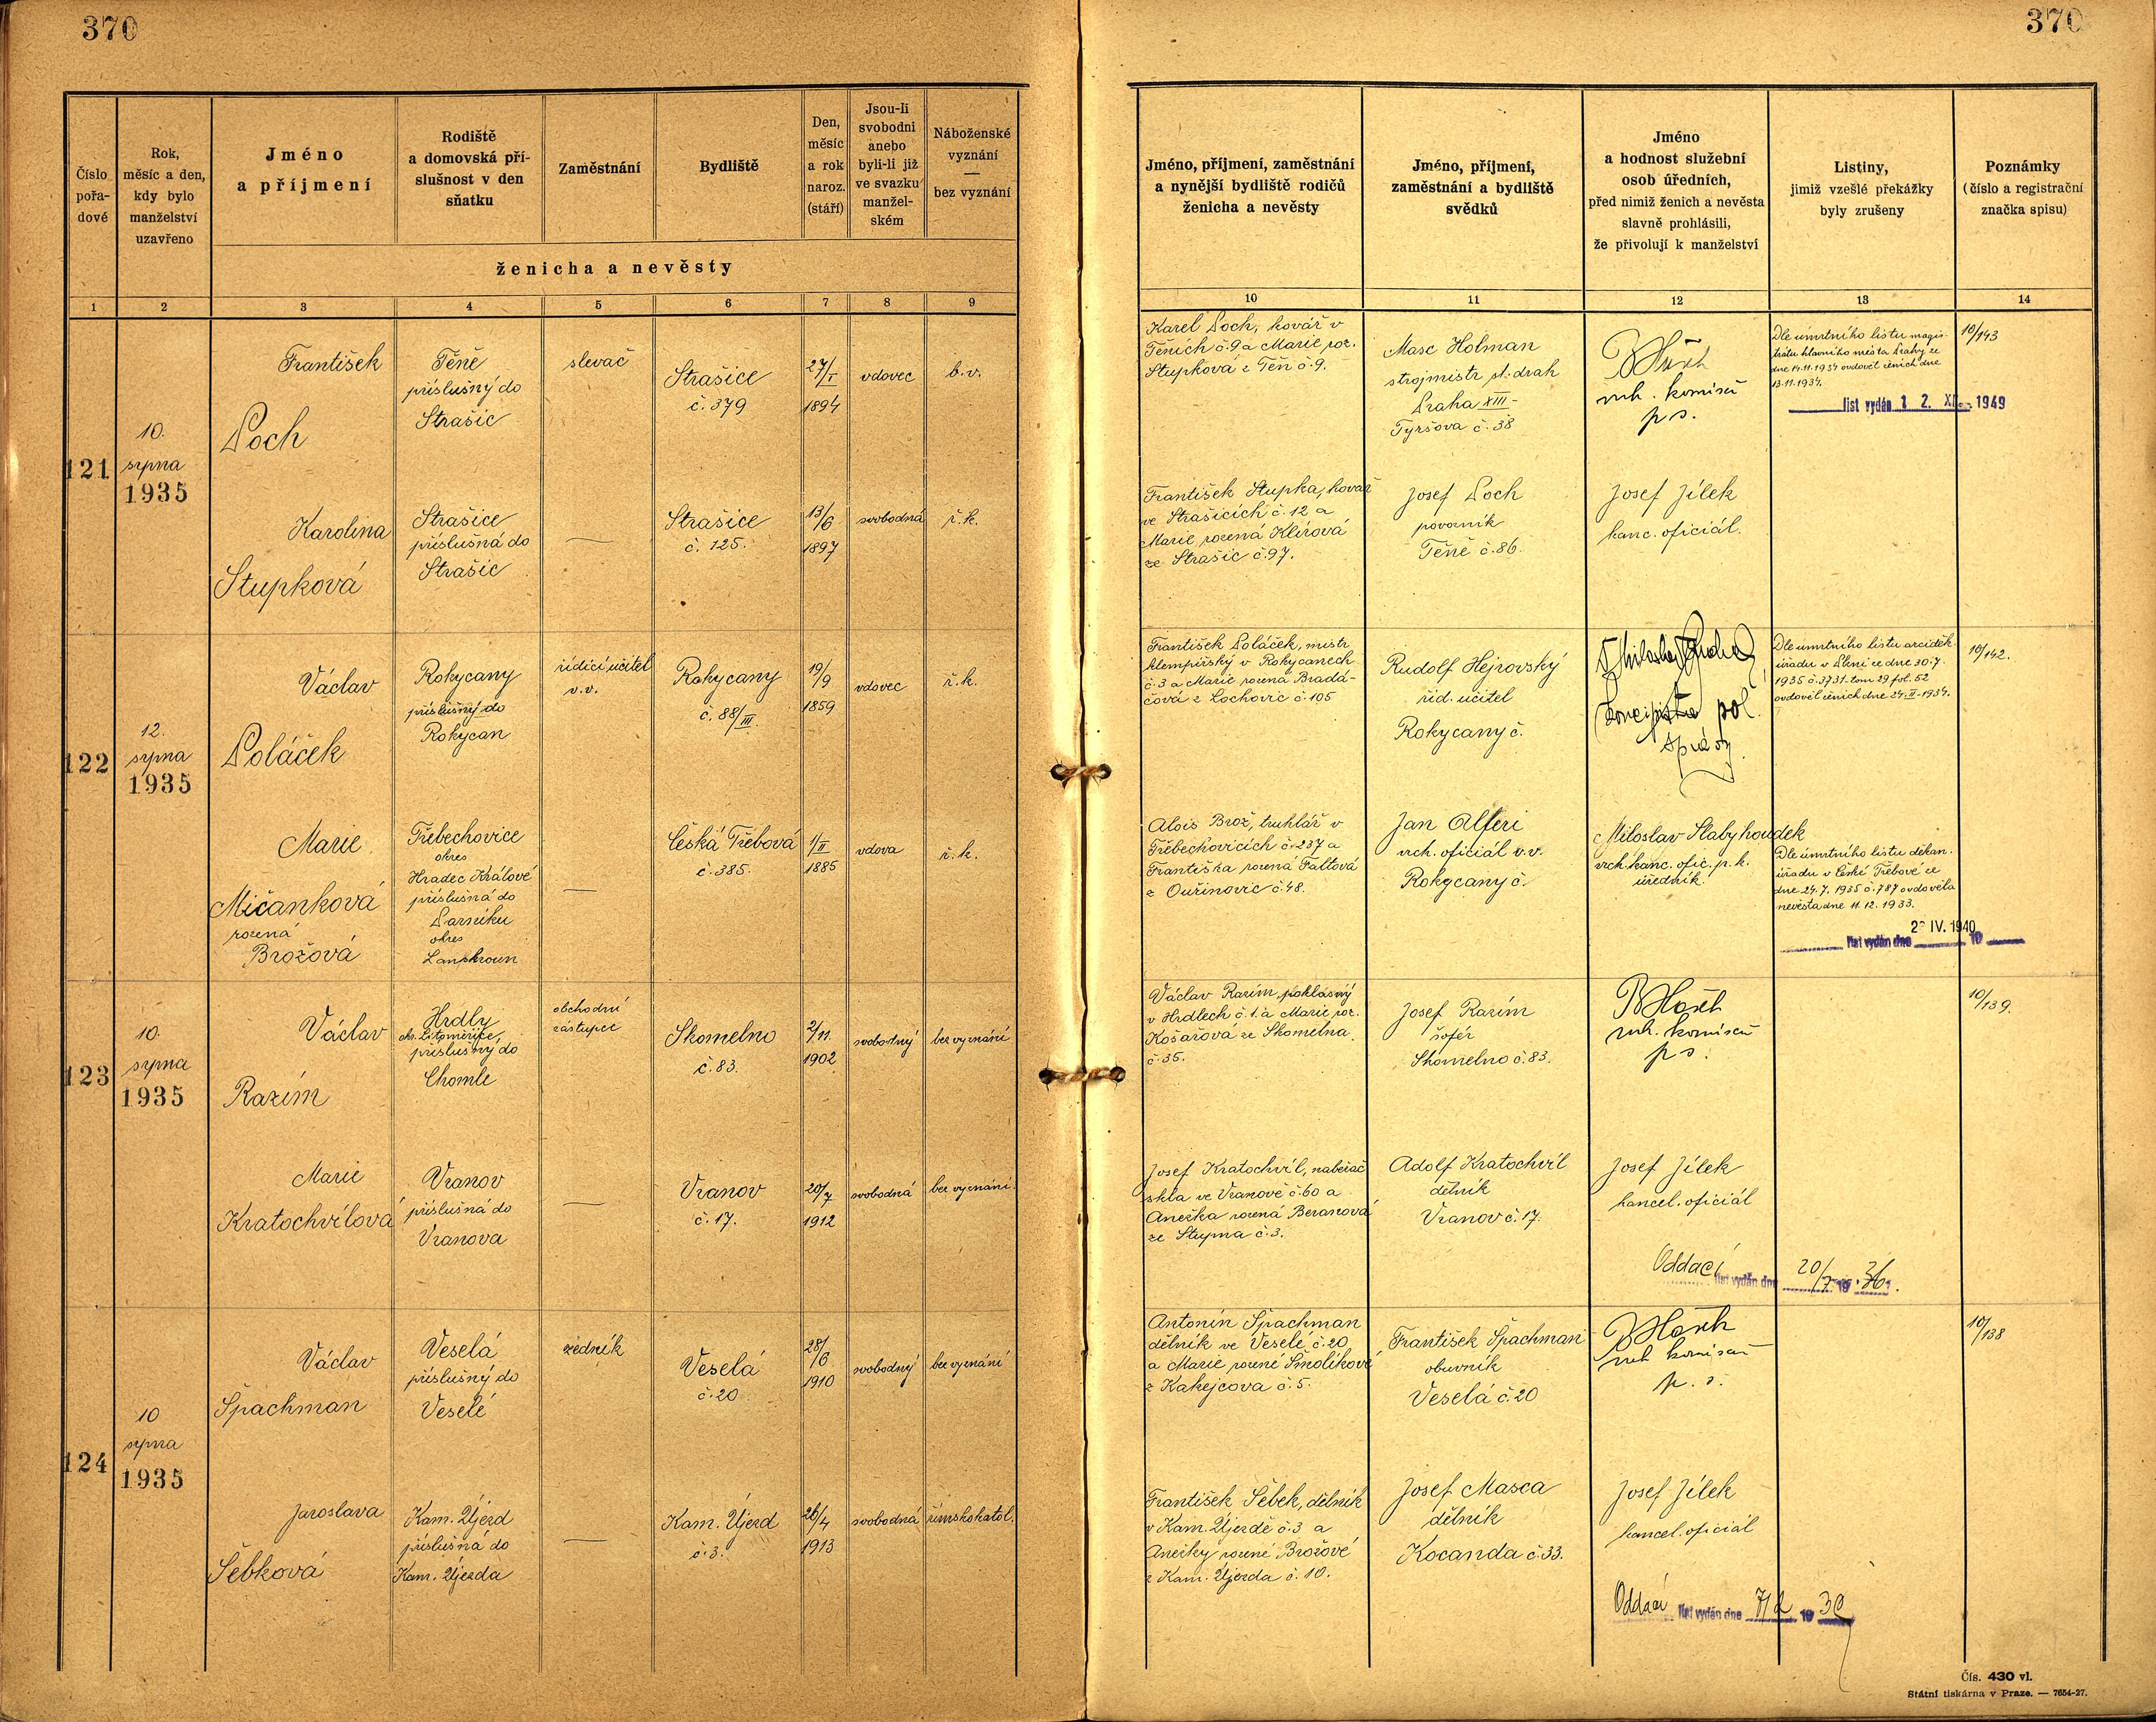 370
370
Číslo pořa-dové
Rok, měsíc a den, kdy bylo manželství uzavřeno
Jméno a příjmení
Rodiště a domovská pří-slušnost v den sňatku
Zaměstnání
Bydliště
Den, měsíc a rok naroz. (stáří)
Jsou-li svobodni anebo byli-li již ve svazku manžel-ském
Náboženské vyznání — bez vyznání
ženicha a nevěsty
Jméno, příjmení, zaměstnání a nynější bydliště rodičů ženicha a nevěsty
Jméno, příjmení, zaměstnání a bydliště svědků
Jméno a hodnost služební osob úředních, před nimiž ženich a nevěsta slavně prohlásili, že přivolují k manželství
Listiny, jimiž vzešlé překážky byly zrušeny
Poznámky (číslo a registrační značka spisu)
1 2 3 4 5 6 7 8 9 10 11 12 13 14
121
10.
srpna
1935
František
Poch
Těně
příslušný do
Strašic
slevač
Strašice
č. 379
27/I
1894
vdovec
b. v.
Karel Poch, kovář v
Těních č. 9 a Marie roz.
Stupková z Těň č. 9.
Holman
strojmistr st. drah
Praha XIII-
Tyršova č. 38
vrch. komisař
p. s.
Dle úmrtního listu magis-
trátu hlavního města Prahy ze
dne 14.11.1934 ovdověl ženich dne
13.11.1934.
list vydán 1 2. XI. 1949
10/143
Karolina
Stupková
Strašice
příslušná do
Strašic
Strašice
č. 125.
13/6
1897
svobodná
ř. k.
František Stupka, kovář
ve Strašicích č. 12 a
Marie rozená Klírová
ze Strašic č. 97.
Josef Poch
Těně č. 86.
Josef Jílek
kanc. oficiál.
122
12.
srpna
1935
Václav
Poláček
Rokycany
příslušný do
Rokycan
řídící učitel
v. v.
Rokycany
č. 88/III.
19/9
1859
vdovec
ř. k.
František Poláček, mistr
klempířský v Rokycanech
č. 3 a Marie rozená Bradá-
čová z Lochovic č. 105
Rudolf Hejrovský
říd. učitel
Rokycany č.
pol.
správy
Dle úmrtního listu arciděk.
úřadu v Plzni ze dne 30. 7.
1935 č. 3731. tom 29 fol. 52
ovdověl ženich dne 24. II. 1934.
10/142.
Marie
Mičanková
rozená
Brožová
Třebechovice
okres
Hradec Králové
příslušná do
Parníku
okres
Lanškroun
Česká Třebová
č. 385.
1/II
1885
vdova
ř. k.
Alois Brož, truhlář v
Třebechovicích č. 237 a
Františka rozená Faltová
z Ouřinovic č. 48.
Jan Alferi
vrch. oficiál v. v.
Rokycany č.
Miloslav Slabyhoudek
vrch. kanc. ofic. p. k.
úředník.
Dle úmrtního listu děkan.
úřadu v České Třebové ze
dne 24. 7. 1935 č. 787 ovdověla
nevěsta dne 11. 12. 1933.
IV. 1940
list vydán dne 19
123
10.
srpna
1935
Václav
Razím
Hrdly
okr. Litoměřice,
příslušný do
Chomle
obchodní
zástupce
Skomelno
č. 83.
2/11.
1902
svobodný
bez vyznání
Václav Razím, poklasný
v Hrdlech č. 1. a Marie roz.
Košařová ze Skomelna
č. 35.
Josef Razím
šofér
Skomelno č. 83.
vrch. komisař
p. s.
10/139.
Marie
Kratochvílová
Vranov
příslušná do
Vranova
Vranov
č. 17.
20/7
1912
svobodná
bez vyznání.
Josef Kratochvíl, nabírač
skla ve Vranově č. 60 a
Anežka rozená Beranová
ze Stupna č. 3.
Adolf Kratochvíl
dělník
Vranov č. 17.
Josef Jílek
kancel. oficiál
Oddací list vydán dne 20/7. 1936.
124
10
srpna
1935
Václav
Špachman
Veselá
příslušný do
Veselé
zedník
Veselá
č. 20
28/6
1910
svobodný
bez vyznání
Antonín Špachman
dělník ve Veselé č. 20
a Marie rozené Šmolíkové
z Kakejcova č. 5.
František Špachman
obuvník
Veselá č. 20
vrch komisař
p. s.
10/138
Jaroslava
Šebková
Kam. Újezd
příslušná do
Kam. Újezda
Kam. Újezd
č. 3.
26/4
1913
svobodná
římskokatol.
František Šebek, dělník
v Kam. Újezdě č. 3 a
Anežky rozené Brožové
z Kam. Újezda č. 10.
Josef Masca
dělník
Kocanda č. 33.
Josef Jílek
kancel. oficiál
Oddací list vydán dne 19
Čís. 430 vl.
Státní tiskárna v Praze. — 7654-27.